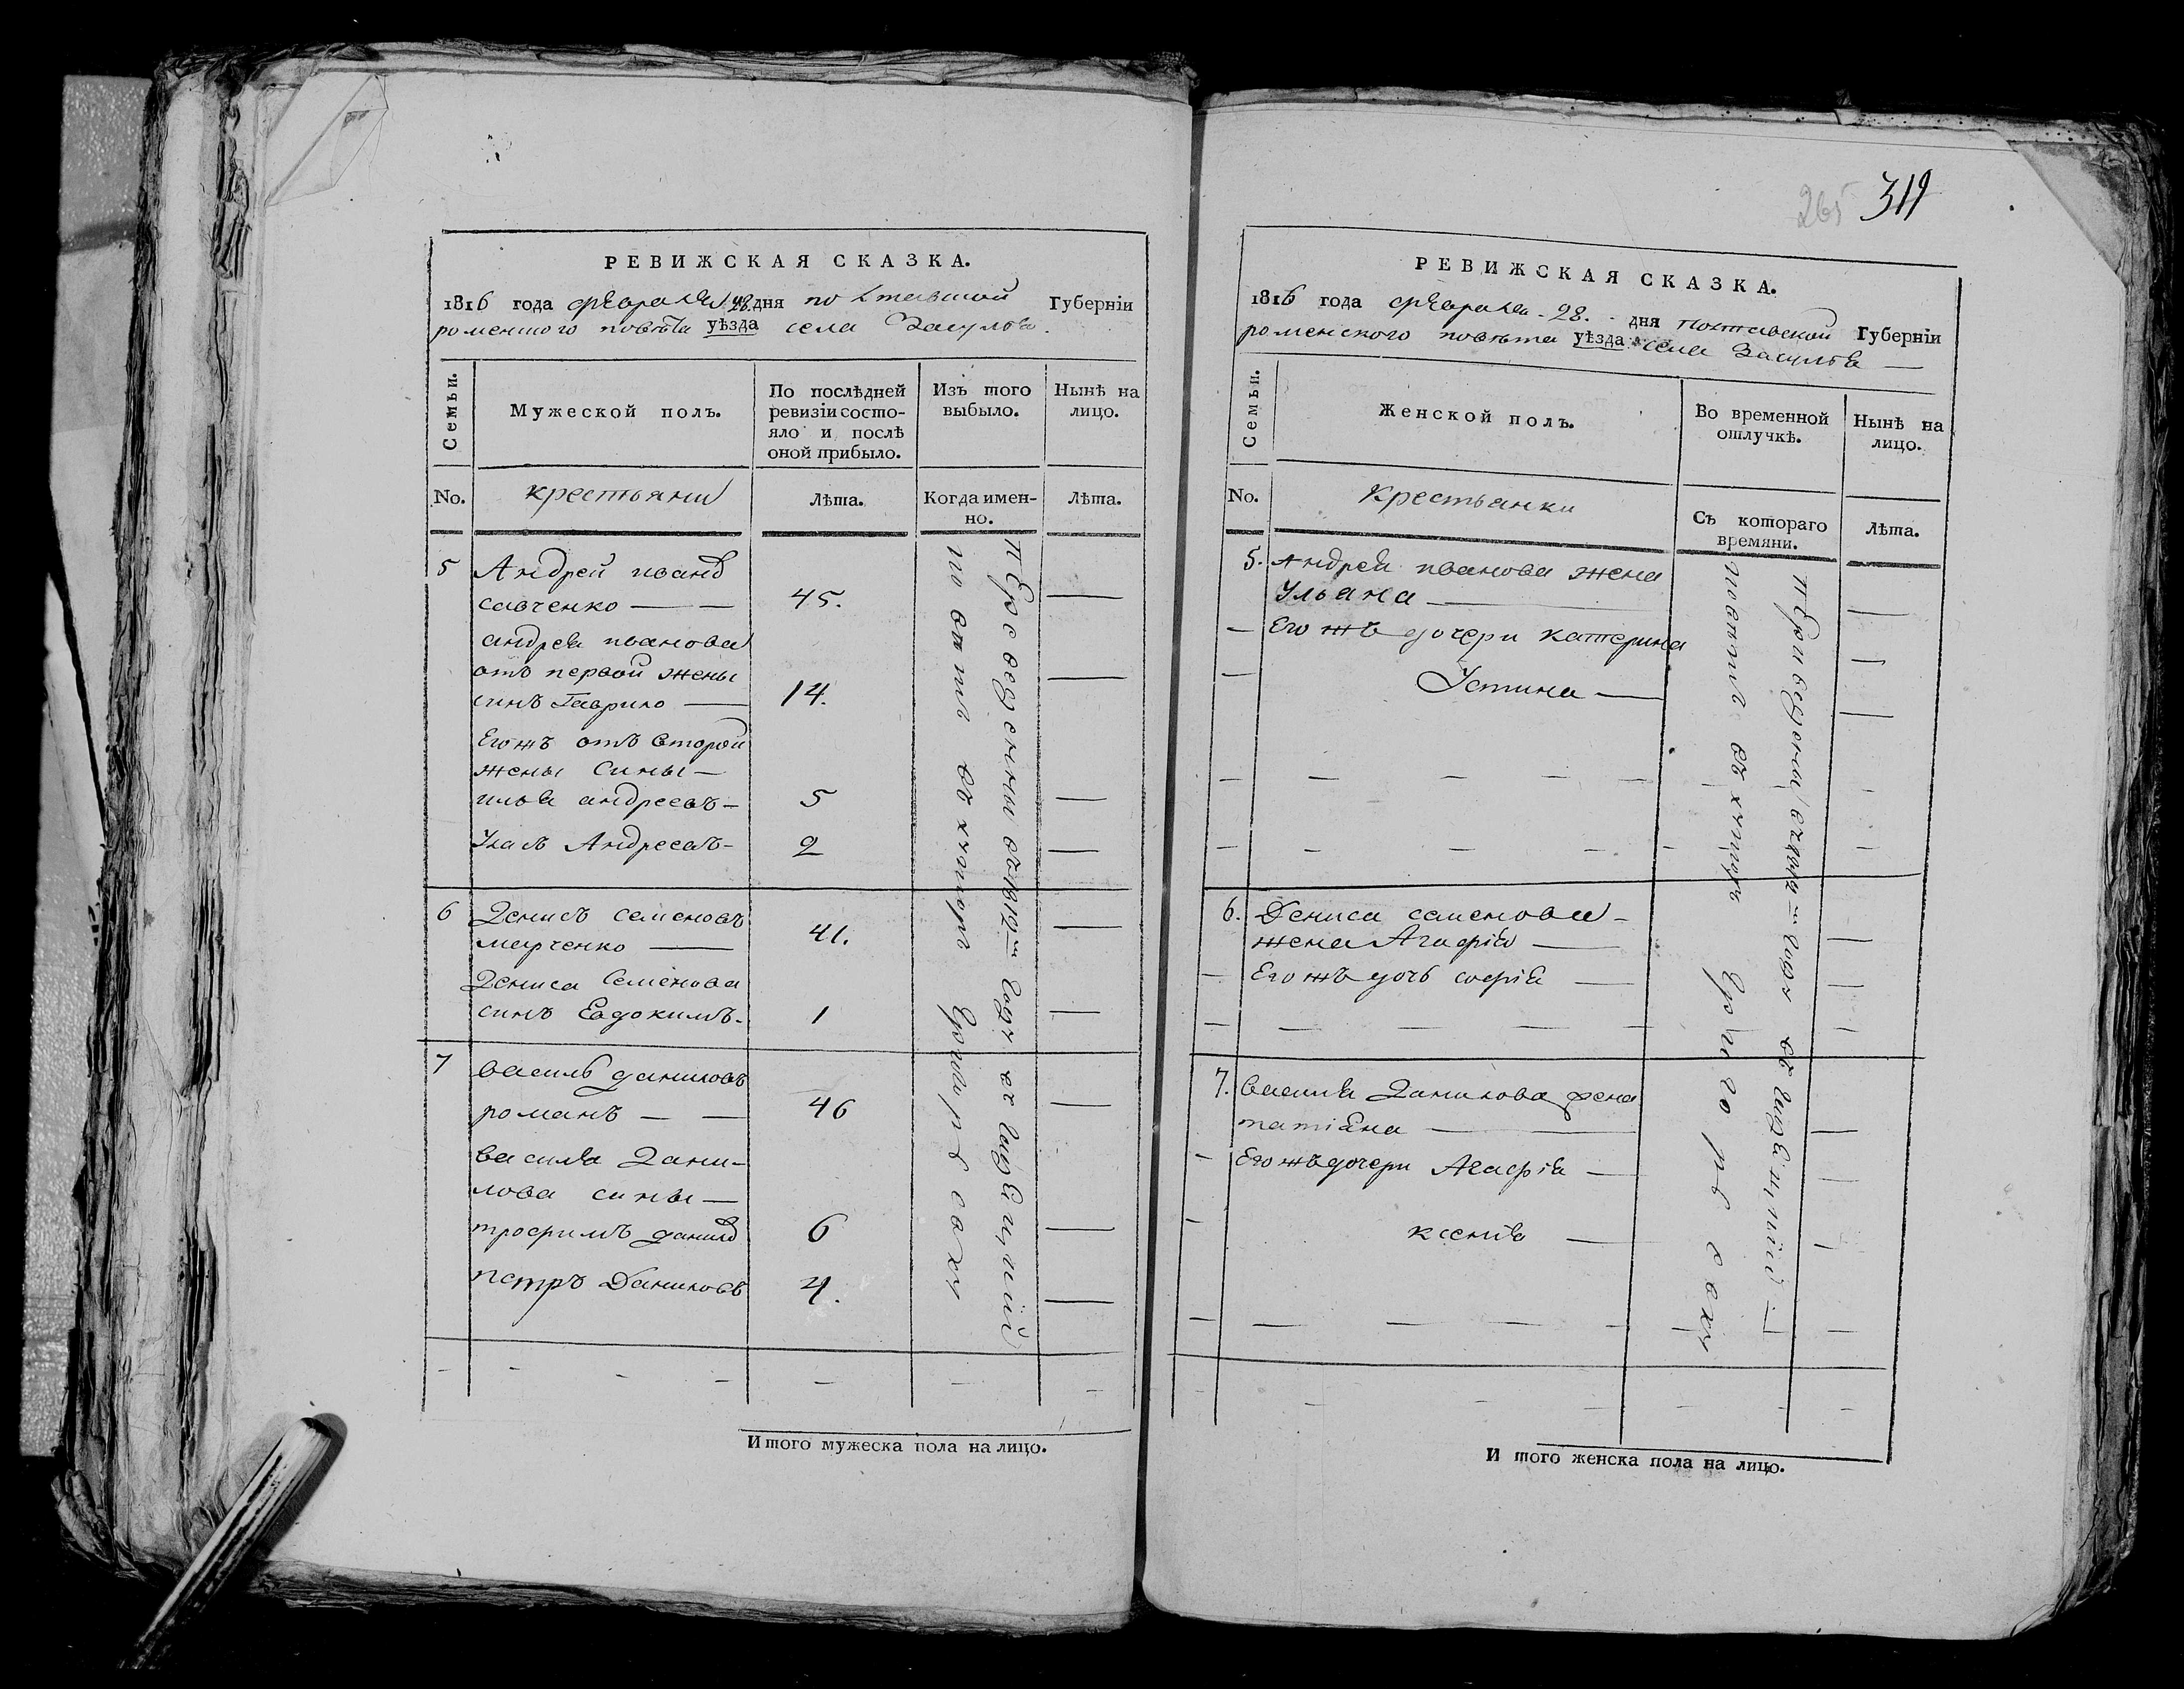 РЕВИЖСКАЯ СКАЗКА.
1816 года февраля 28 дня полтавской Губерніи
роменского повѣта уѣзда села Засулья.
Семьи.
Мужеской полъ.
По послѣдней ревизіи состо-
яло и послѣ
оной прибыло.
Изъ того
выбыло.
Нынѣ на
лицо.
No.
крестьяни
Лѣта.
Когда имен-
но.
Лѣта.
5 Андрей иванов
савченко — — 45. —
андрея иванова
отъ первой жены
синъ Гаврило — 14. —
Его жъ отъ второй
жены сины —
илья андреевъ — 5 —
Улас Андреевъ — 2 —
6 Денисъ семеновъ
марченко — 41. —
Дениса Семенова
синъ Евдокимъ. 1 —
7 василь даниловъ
романъ — — 46 —
василя Дани-
лова сины —
трофимъ данилов 6 —
петръ Даниловъ 4. —
Итого мужеска пола на лицо.
265 319
РЕВИЖСКАЯ СКАЗКА.
1816 года февраля 28. дня полтавской Губерніи
роменского повѣта уѣзда села Засулья —
Семьи.
Женской полъ.
Во временной
отлучкѣ.
Нынѣ на
лицо.
No.
Крестьянки
Съ котораго
времяни.
Лѣта.
5. Андрея иванова жена
Ульяна — —
— Его жъ дочери катерина —
— Устина — —
6. Дениса семенова —
жена Агафія — —
— Его жъ дочь софія — —
7. василя Данилова жена
татіяна — —
— Его жъ дочери Агафія — —
— ксенія — —
И того женска пола на лицо.